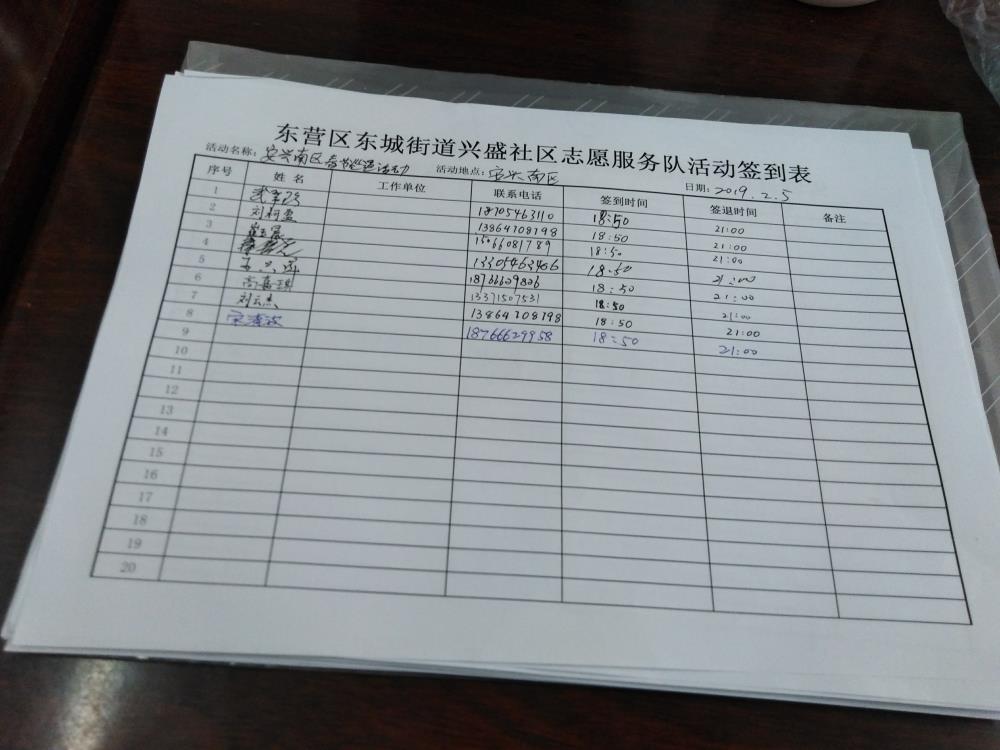 东营区东城街道兴盛社区志愿服务队活动签到表
活动名称：安兴南区春节巡逻活动 活动地点：安兴南区 日期：2019.2.5
序号 姓名 工作单位 联系电话 签到时间 签退时间 备注
1 18705463110 18:50 21:00
2 刘柯盈 13864708198 18:50 21:00
3 15066081789 18:50 21:00
4 13305463406 18:50 21:00
5 18766609806 18:50 21:00
6 高嘉琪 13371507531 18:50 21:00
7 刘云杰 13864708198 18:50 21:00
8 18766629958 18:50 21:00
9
10
11
12
13
14
15
16
17
18
19
20